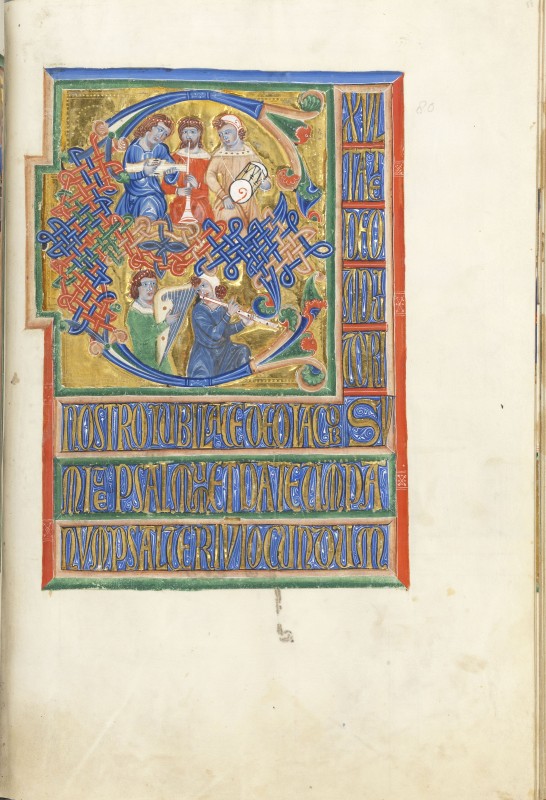 EXUL
TATE
DEO
ADIU
TORI
NOSTRO IUBILATE DEO IACOB SU
MITE PSALMUM ET DATE TIMPA
NUM PSALTERIUM IOCUNDUM
80